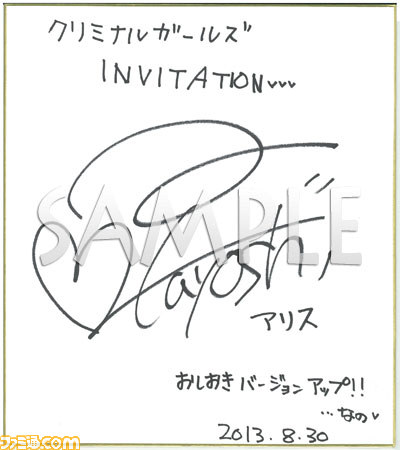 クリミナルガールズ
INVITATION♡♡♡
SAMPLE
アリス
おしおきバージョンアップ!!
…なの♡
2013.8.30
ファミ通.com